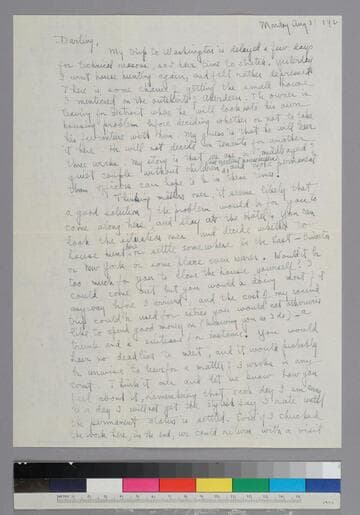 Monday Aug 3 1942
Darling,
My trip to Washington is delayed a few days
for technical reasons, so I have time to write. Yesterday
I went house hunting again, and felt rather depressed.
There is some chance of getting the small house
I mentioned on the outskirts of Aberdeen. The owner is
leaving for Detroit where he will look into his own
housing problem before deciding whether or not to take
his furniture with him. My guess is that he will leave
it here. He will not decide on tenants for another
three weeks. My story is that we are a
quiet couple without children and more permanent
than officers can hope to be in these times.
Thinking matters over, it seems likely that
a good solution of the problem would be for you to
come along here, and stay at the hotel. You can
look the situation over and decide whether to
house hunt or settle somewhere in the East
or New York or some place
too much for you to close the house yourself? I
could come out but you would be doing most of it
anyway before I arrived, and the cost of my
trip could be used for
like to spend good money on (knowing you as I do) a
trunk and a suitcase, for instance. You would
have no deadline to meet, and it would probably
be unwise to leave for a matter of 3 weeks in any
event. Think it over and let me know how you
feel about it, remembering that each day I am
a day I will not get the
the permanent status is settled. First, I checked
the work here, in the end, we could return with a visit